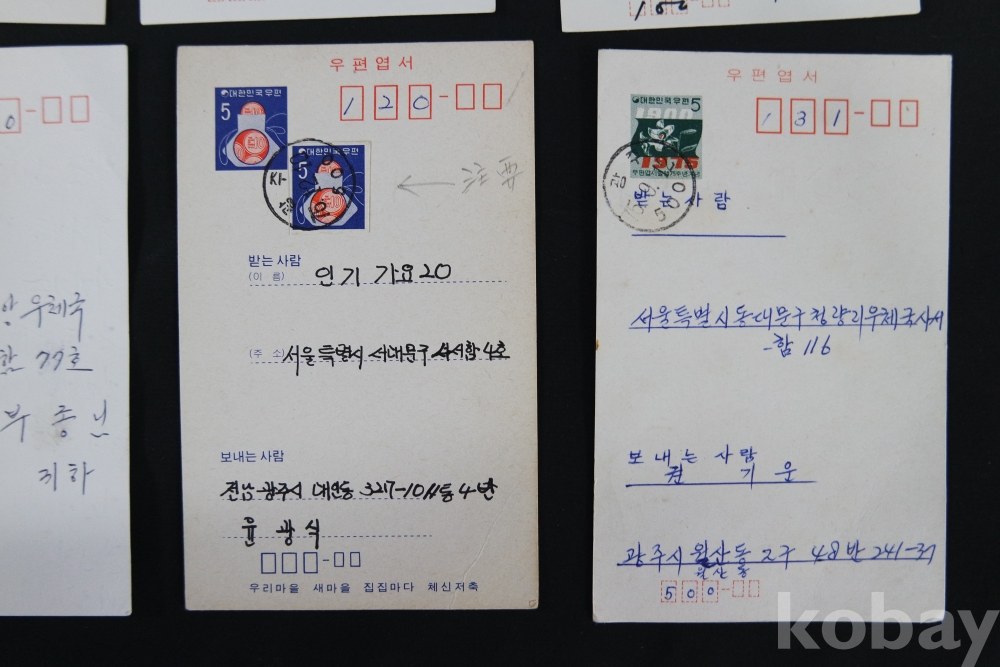 0
우체국
함 77호
부 종 님
귀하
우편엽서
대한민국우편
5
120
대한민국우편
5
받는사람
(이 름)
인기 가요20
(주 소)
서울특별시 서대문구 사서함 4호
보내는사람
전남 광주시 대인동 327-10 4반
윤 광 식
우리마을 새마을 집집마다 체신저축
우편엽서
대한민국우편 5
1900
1975
131
500
받는 사람
서울특별시동대문구청량리우체국사서
함 116
보내는 사람
권 기 운
광주시 월산동 2구 48반 241-37
월산동
500
kobay